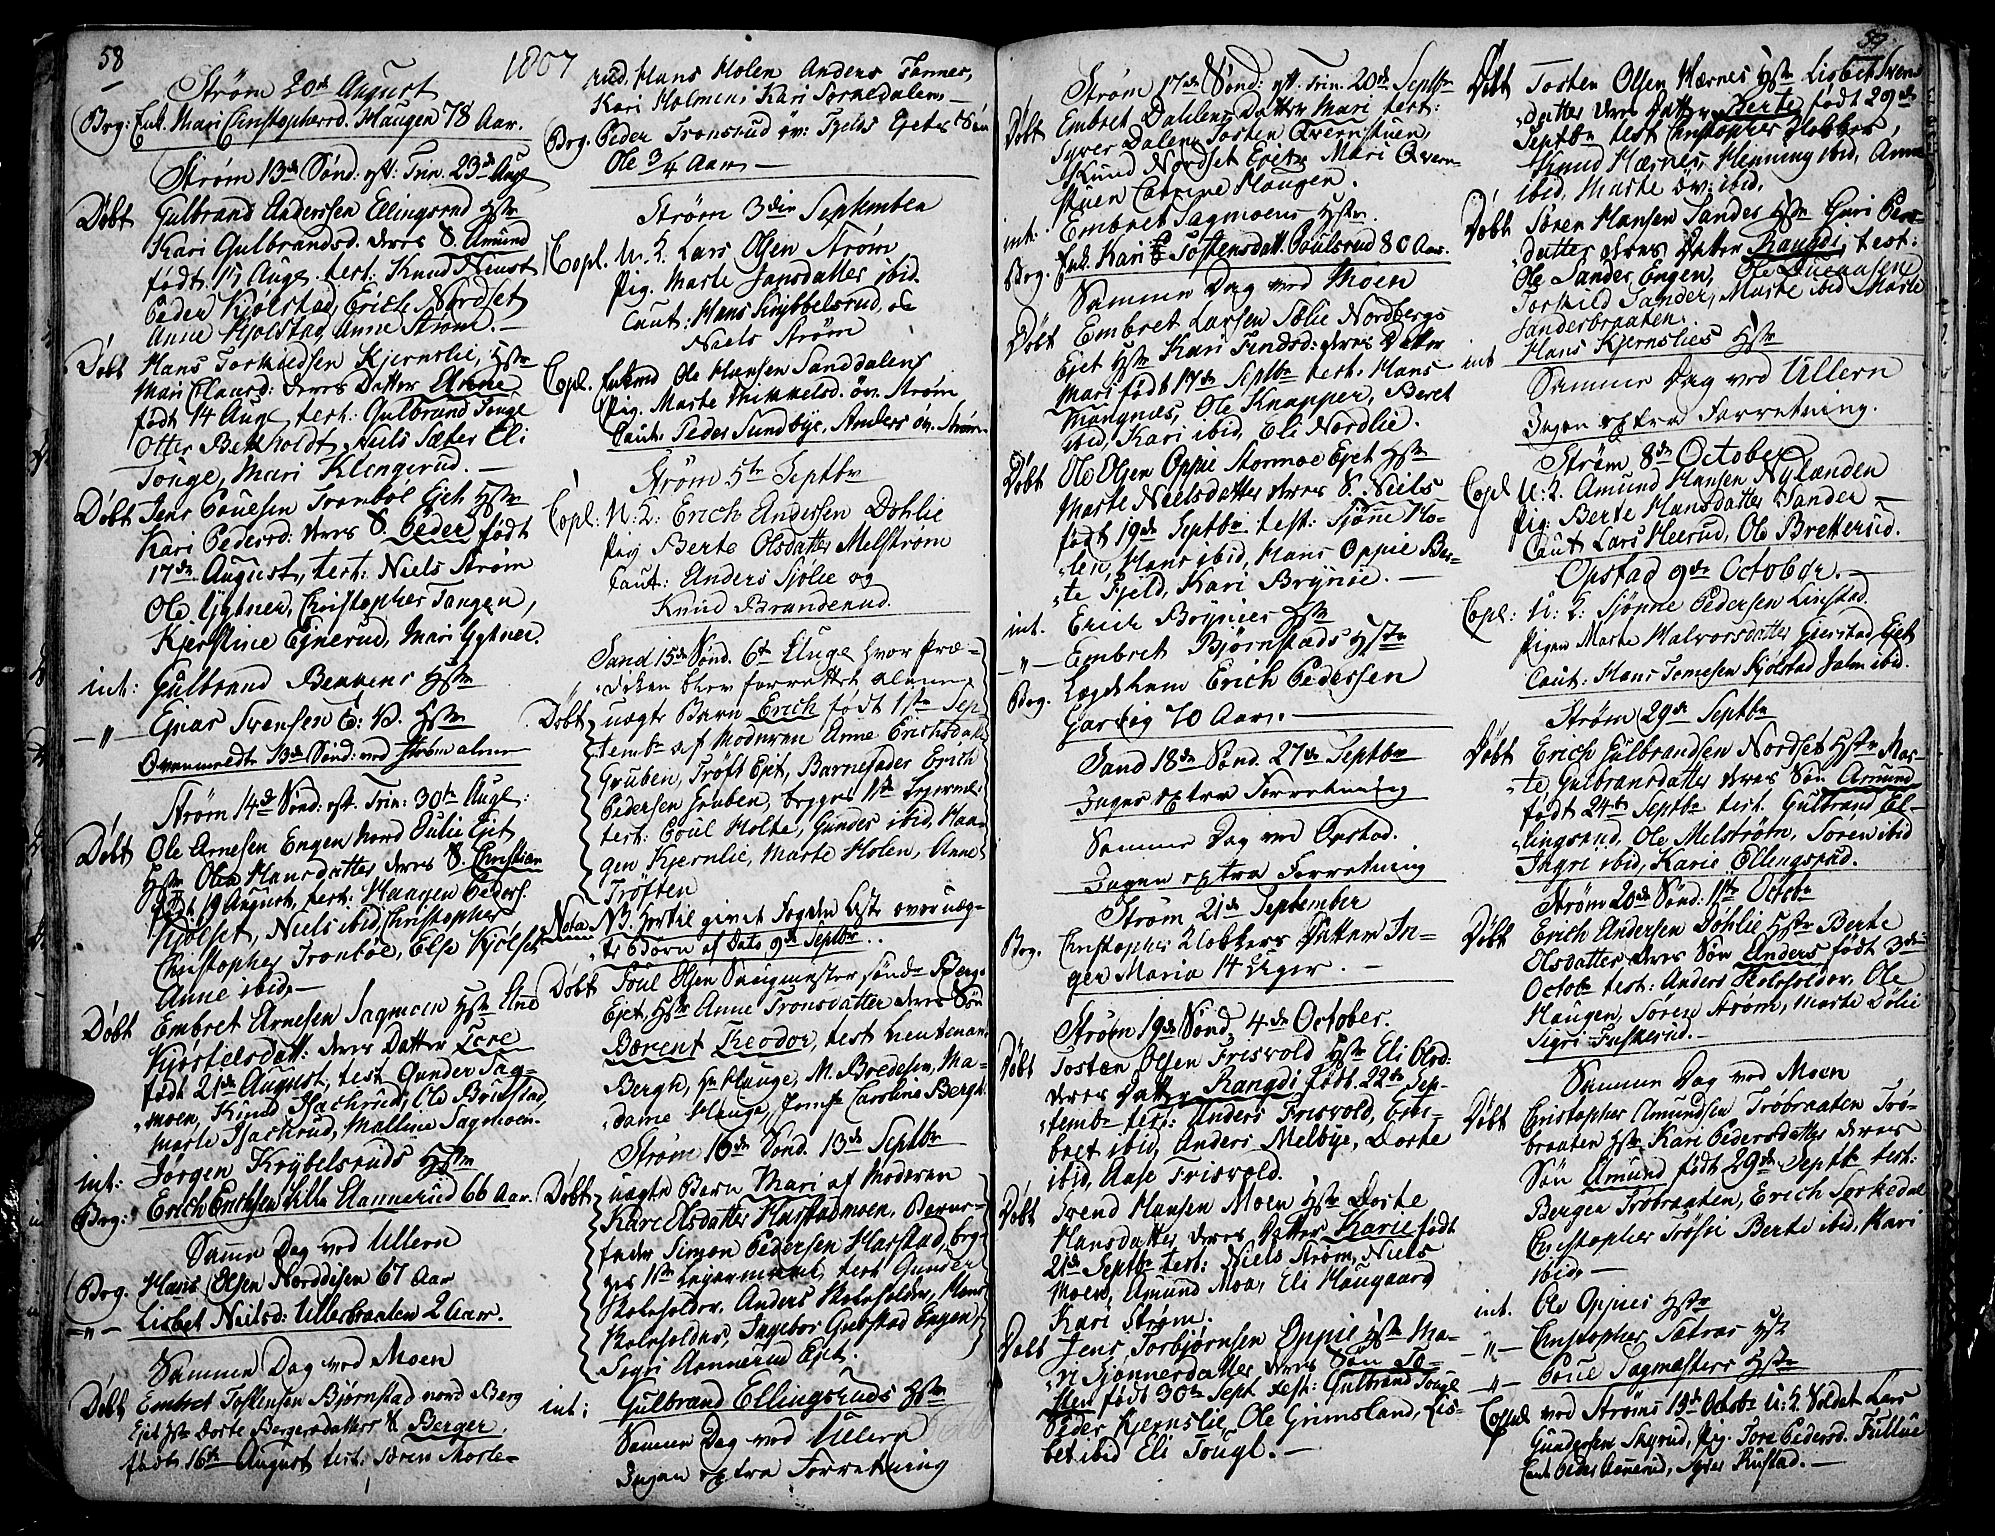 58
1807
Strøm 20de August
Brg: Enk. Mari Christophersd. Haugen 78 Aar.
Strøm 13de Sønd: eft: Trin. 23de Aug
Døbt Gulbrand Anderssen Ellingsrud Hstr
Kari Gulbrandsd. deres S. Amund
født 15 Aug. test: Knud
Peder Kjolstad, Erich Nordset
Anne Kjolstad, Anne Strøm. —
Døbt Hans Torkildsen Kjernslie, Hstr
Mari Clausd: deres Datter Anne
født 14 Aug test: Gulbrand Touge
Otter Niels Sæter Eli
Touge, Mari Klengerud. —
Døbt Jens Povelsen Tronbøl Ejet Hstr
Kari Pedersd: deres S. Peder født
17de August, test: Niels Strøm
Ole Gyltner, Christopher Tangen,
Kjerstine Ejnerud, Mari Gyltner.
int: Gulbrand Hstr
— " — Ejnar Svensen Hstr
13de Sønd: ved Strøm
Strøm 14de Sønd: eft. Trin: 30te Aug:
Døbt Ole Arnesen Engen Nord Julie Ejet
Hstr Olea Hansdatter deres S. Christian
født 19 August, test: Haagen Peders.
Kjølset, Niels ibid, Christopher
Christopher Tronbøl, Else Kjølset
Anne ibid. —
Døbt Embret Arnesen Sagmoen Hstr
Kjostelsdatt: deres Datter Tore
født 21de August, test Gunder Sag-
moen, Knud Isachrud, Ole Brustad,
Marte Isachrud, Malline Sagmoen.
int: Jorgen Krybelsruds Hstr
Brg: Erich Erichsen Lille Hannerud 66 Aar.
Samme Dag ved Ullern
Brg. Hans Olsen Norddisen 67 Aar
— " — Lisbet Nielsd: Ullersbraaten 2 Aar.
Samme Dag ved Moen
Døbt Embret Tostensen Bjørnstad nord Berg
Ejet Hstr Dorte Bergersdatter S. Berger
født 16te August test: Søren Morte-
rud, Hans Holen Anders Tarmes,
Kari Holmens Kari Torkedalen, —
Brg. Peder Tronsrud øv: Fjelds Ejets Søn
Ole 3/4 Aar —
Strøm 3die September
Copl. U. K. Lars Olsen Strøm
Pig. Marte Jansdatter ibid.
Caut: Hans Krybbelsrud, og
Niels Strøm
Copl. Enkmd Ole Hansen Sanddalens
Pig. Marte Mikkelsd. øv. Strøm
Caut: Peder Sundbye, Anders øv. Strøm.
Strøm 5te Septbr
Copl: U. K: Erich Andersen Dohlie
Pig Berte Olsdatter Melstrøm
Caut: Anders Sjolie og
Knud Branderud.
Sand 15de Sønd. 6te hvor Præ-
diken blev forrettet
Døbt uægte Barn Erich født 1ste Sep-
tembr af Moderen Anne Erichsdatter
Gruben, Trøft Ejet, Barnefader Erich
Pedersen Gruben, begges 1ste Lejermaal
test: Poul Holte, Gunder ibid, Haa-
gen Kjernlie, Marte Holen, Anne
Trøften
Nota NB. hertil givet Fogden Liste over uæg-
te Børn af Dato 9de Septbr.
Døbt Poul Olsen Saugmester søndr Bergs
Ejet, Hstr Anne Tronsdatter deres Søn
Berent Theodor, test Lieutenant
Bergh, Hr Hauge, M. Bredesen, Ma-
dame Hauge, Jomfr Caroline Bergh.
Strøm 16de Sønd. 13de Septbr
Døbt uægte Barn Mari af Moderen
Kari Elsdatter Harstadmoen, Barne-
fader Simon Pedersen Harstad, beg-
ges 1ste Lejermaal, test Gunder
Skoleholder, Anders Skoleholder, Hans
Skoleholder, Ingebor Grebstad Engen,
Sigri Aannerud Ejet.
int: Gulbrand Ellingsruds Hstr
Samme Dag ved Ullern
Ingen extra Forretning
59
Strøm 17de Sønd: eft. Trin. 20de Septbr
Døbt Embret Dahlens Datter Mari test:
Syver Dalen, Tosten Qvernstuen,
Amund Nordset Ejets Mari Qvern-
stuen Catrine Haugen.
int: Embret Sagmoens Hstr.
Brg. Enk. Kari Tostensdatt. Poulsrud 80 Aar.
Samme Dag ved Moen
Døbt Embret Larsen Solie Nordbergs
Ejet Hstr Kari Findsd: deres Datter
Mari født 17de Septbr test: Hans
Mangnæs, Ole Knapper, Beret
ibid, Kari ibid, Eli Nordlie.
Døbt Ole Olsen Oppie Stormoe Ejet Hstr
Marte Nielsdatter deres S. Niels
født 19de Septbr test: Sjønne Ho-
len, Hans ibid, Hans Oppie Ber-
te Fjeld, Kari Brynie. —
int. Erich Brynies Hstr
— " — Embret Bjørnstads Hstr
Brg. Lægdslem Erich Pedersen
Garsieg 70 Aar. —
Sand 18de Sønd. 27de Septbr
Ingen extra Forretning
Samme Dag ved Opstad.
Ingen extra Forretning
Strøm 21de September
Brg. Christopher Klokkers Datter In-
ger Maria 14 Uger. —
Strøm 19de Sønd. 4de October.
Døbt Tosten Olsen Frisvold Hstr Eli Olsd.
deres Datter Rangdi født. 22de Sep-
tembr test: Anders Frisvold, Em-
bret ibid, Anders Melbye, Dorte
ibid, Aase Frisvold.
Døbt Svend Hansen Moen Hstr Dorte
Hansdatter deres Datter Karie født
21de Septbr test: Niels Strøm, Niels
Moen, Amund Moe, Eli Haugaard
Kari Strøm.
Døbt Jens Torbjørnsen Oppie Hstr Ma-
ri Sjønnesdatter deres Søn To-
sten født 30te Sept. test: Gulbrand Tougl
Peder Kjernslie, Ole Grimsland, Lis-
bet ibid Eli Tougl. —
Døbt Tosten Olsen Hærnes Hstr Lisbet Svens
datter deres Datter Berte født 29de
Septbr test Christopher Klokker,
Amund Hærnes, Henning ibid, Anne
ibid, Marte øv: ibid.
Døbt Søren Hansen Sander Hstr Guri Peer-
datter deres Datter Rangdi, test:
Ole Sander Engen, Ole
Torkild Sander, Marte ibid Marte
Sanderbraaten.
int Hans Kjernslies Hstr
Samme Dag ved Ullern
Ingen extra Forretning.
Strøm 8de October
Copl U. K. Amund Hansen Nylænden
Pig: Berte Hansdatter Sander —
Caut Lars Heerud, Ole Bretterud.
Opstad 9de October. —
Copl: U: K: Sjønne Pedersen Linstad.
Pigen Marte Halvorsdatter Gierstad Ejet
Caut: Hans Tomesen Kjolstad Jahn ibid.
Strøm 29de Septbr
Døbt Erich Gulbrandsen Nordset Hstr Mar-
te Gulbransdatter deres Søn Amund
født 24de Septbr test. Gulbrand El-
lingsrud, Ole Melstrøm, Soren ibid
Ingri ibid, Karie Ellingsrud.
Strøm 20de Sønd: 11te Octobr
Døbt Erich Andersen Døhlie Hstr Berte
Olsdatter deres Søn Anders født 3die
Octobr test: Anders Skoleholder, Ole
Haugen, Søren Strøm, Marte Dølie
Sigri Fuskerud. —
Samme Dag ved Moen
Døbt Christopher Amundsen Trøbraaten Trø-
braaten Hstr Kari Pedersdatter deres
Søn Amund født 29de Septbr test:
Bergen Trøbraaten, Erich Torkedal
Christopher Trøsvi Berte ibid, Kari
ibid. —
int. Ole Oppies Hstr
— " — Christopher Sætras Hstr
— " — Povel Sagmæsters Hstr
Copul ved Strøms 13de Octobr U: K. Soldat Lars
Gundersen Skyrud, Pig. Tore Pedersd. Fulluie
Caut Peder Aannerud, Syver Rustad. —